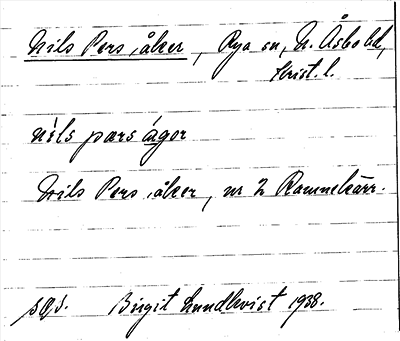 Nils Pers åker, Rya sn, N. Åsbo hd,
Krist. l.
nils pærs ågor
Nils Pers åker, nr 2 Rammekärr.
Birgit Lundkvist 1938.